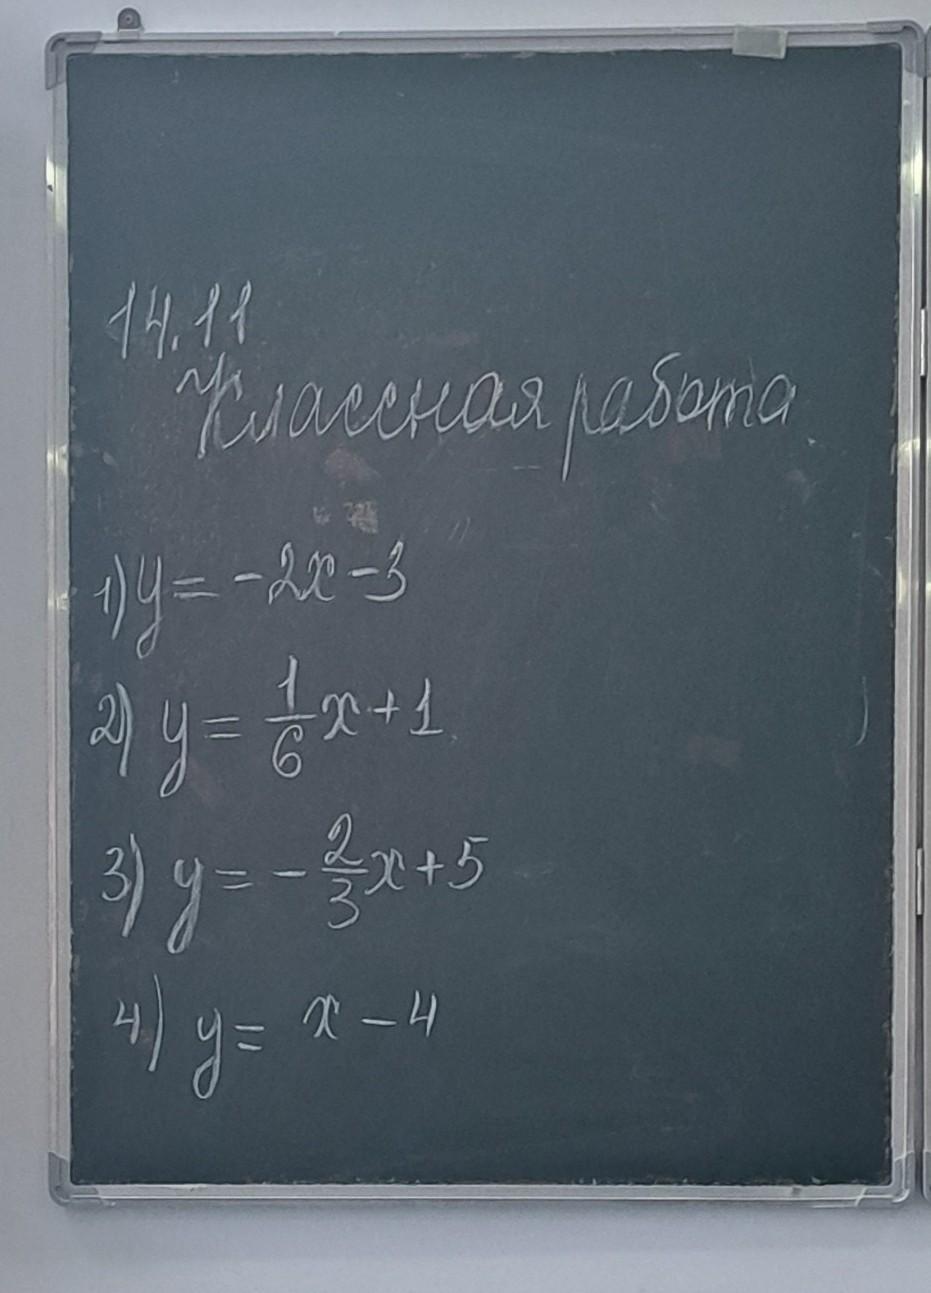 14.11
Классная работа
1) y = -2x - 3
2) y = 1/6 x + 1
3) y = - 2/3 x + 5
4) y = x - 4